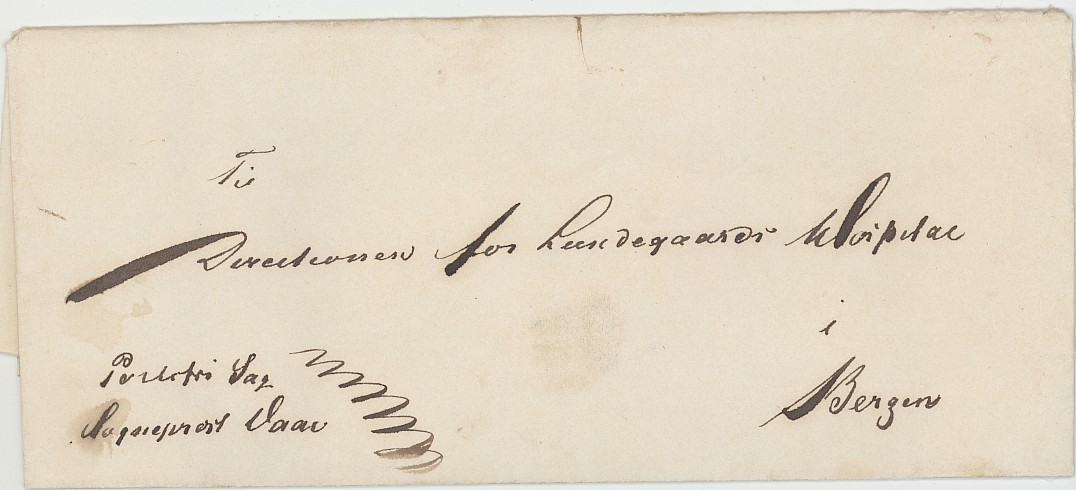 Til
Directionen for Lundegaards Hospital
i
Bergen
Portofri Sag
Sogneprest Daae